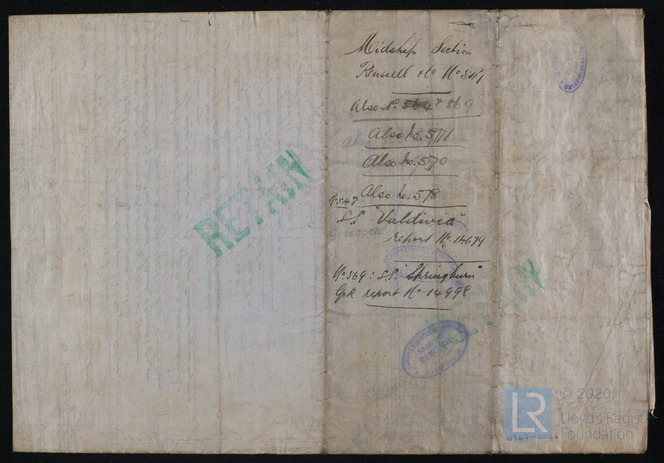 Midship Section
Russell & Co No 547
Also No. 564 & 569
Also No. 571
Also No. 570
Also No. 578
No 547
S.S. "Valdivia"
Greenock
report No. 14679
No 569: S.S. "Springburn"
Grk report No 14998
RETAIN
RETAIN
LR
© 2020
Lloyd's Regist
Foundation